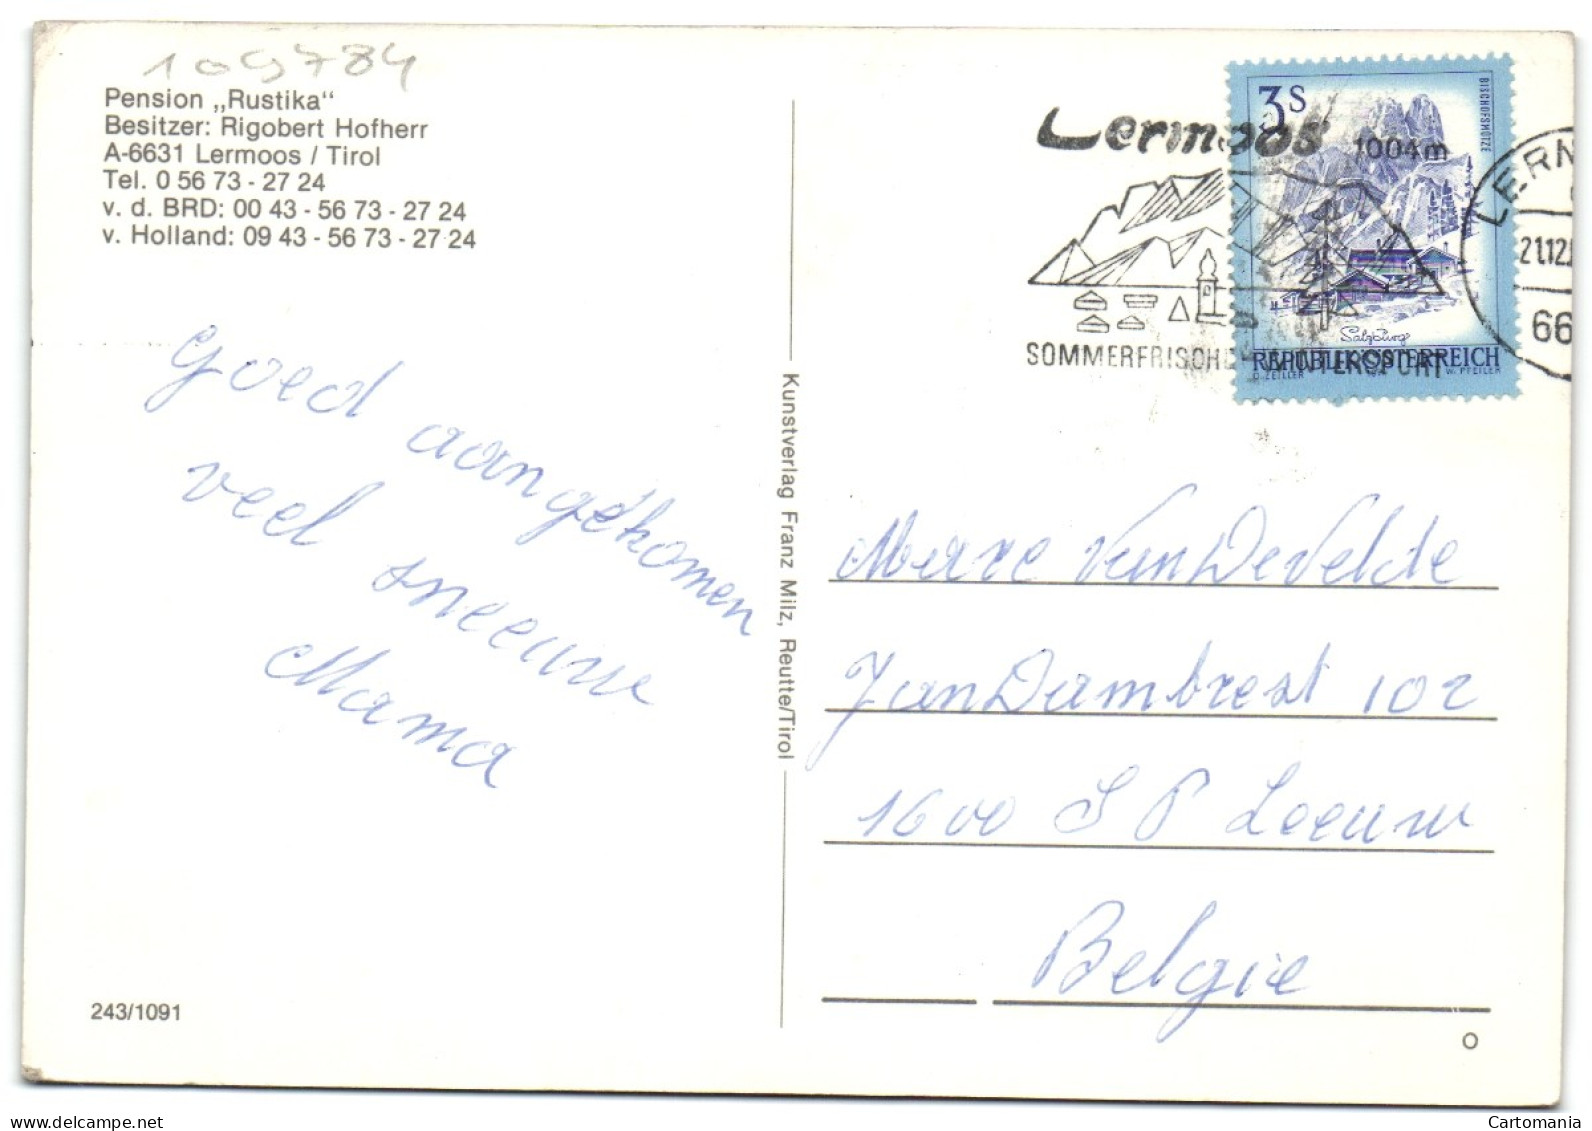 109784
Pension „Rustika“
Besitzer: Rigobert Hofherr
A-6631 Lermoos / Tirol
Tel. 0 56 73 - 27 24
v. d. BRD: 00 43 - 56 73 - 27 24
v. Holland: 09 43 - 56 73 - 27 24
Goed aangekomen
veel sneeuw
Mama
243/1091
Kunstverlag Franz Milz, Reutte/Tirol
Lermoos
1004 m
SOMMERFRISCHE WINTERSPORT
3 S
BISCHOFSMÜTZE
Salzburg
REPUBLIK ÖSTERREICH
O. ZEILLER
W. PFEILER
LERM
21.12.
66
Van De Velde
Jan Dambrest 102
1600 S P Leeuw
Belgie
O
Cartomania